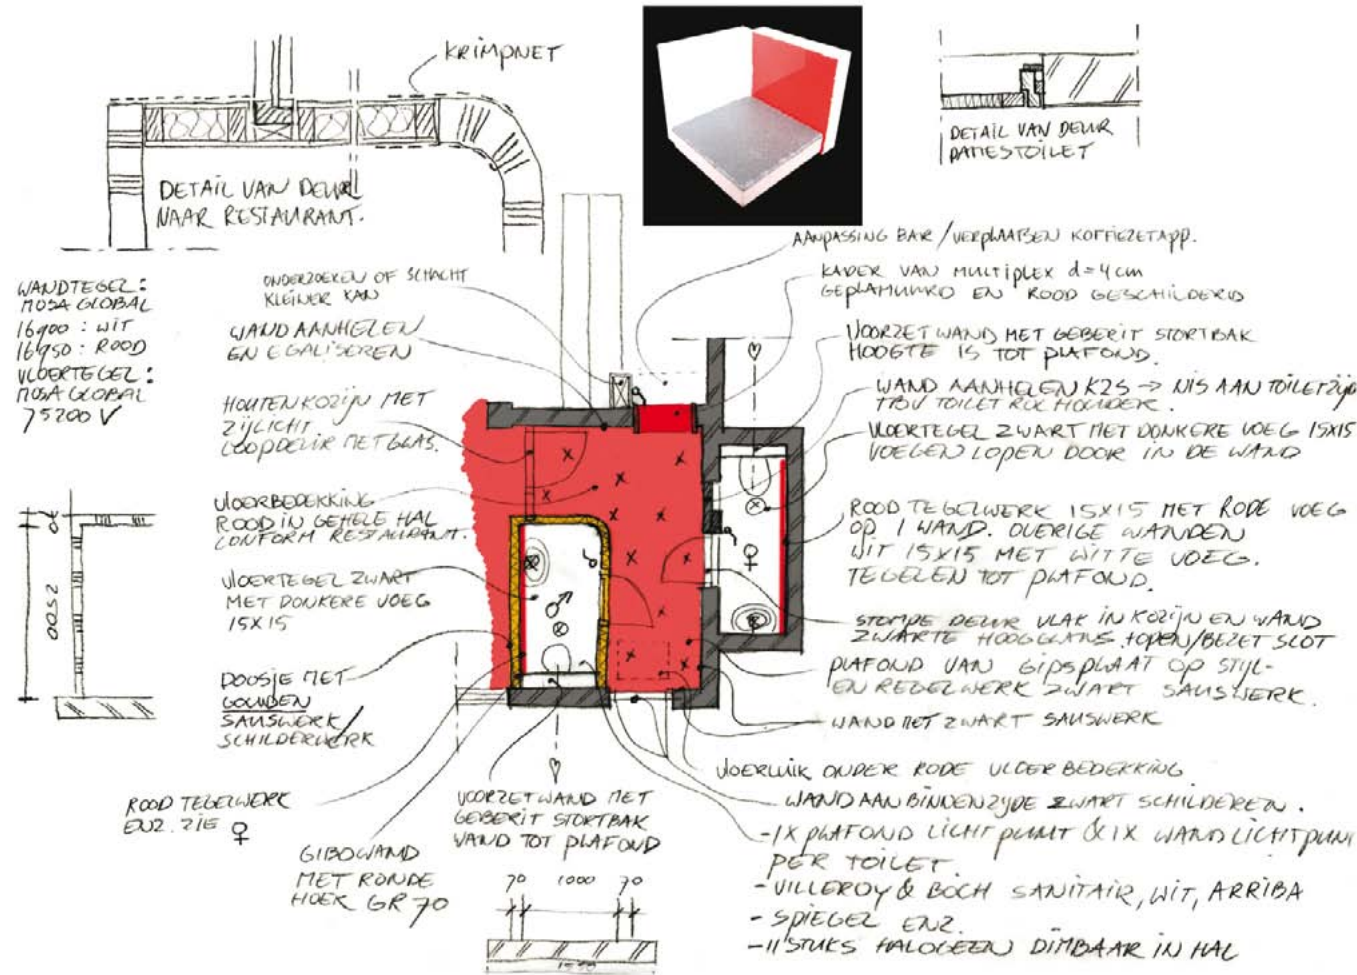 KRIMPNET
DETAIL VAN DEUR
NAAR RESTAURANT.
DETAIL VAN DEUR
DAMESTOILET
WANDTEGEL:
MOSA GLOBAL
16900 : WIT
16950 : ROOD
VLOERTEGEL:
MOSA GLOBAL
75200 V
ONDERZOEKEN OF SCHACHT
KLEINER KAN
WAND AANHELEN
EN EGALISEREN
HOUTEN KOZIJN MET
ZIJLICHT.
LOOPDEUR MET GLAS.
VLOERBEDEKKING
ROOD IN GEHELE HAL
CONFORM RESTAURANT.
VLOERTEGEL ZWART
MET DONKERE VOEG
15X15
DOOSJE MET
GOUDEN
SAUSWERK/
SCHILDERWERK
ROOD TEGELWERK
ENZ. ZIE ♀
GIBOWAND
MET RONDE
HOEK GR 70
VOORZETWAND MET
GEBERIT STORTBAK
WAND TOT PLAFOND
70 1000 70
70
2500
AANPASSING BAR / VERPLAATSEN KOFFIEZETAPP.
KADER VAN MULTIPLEX d=4cm
GEPLAMUURD EN ROOD GESCHILDERD
VOORZETWAND MET GEBERIT STORTBAK
HOOGTE IS TOT PLAFOND.
WAND AANHELEN KZS → NIS AAN TOILETZIJDE
TBV TOILET ROLHOUDER.
VLOERTEGEL ZWART MET DONKERE VOEG 15X15
VOEGEN LOPEN DOOR IN DE WAND
ROOD TEGELWERK 15X15 MET RODE VOEG
OP 1 WAND. OVERIGE WANDEN
WIT 15X15 MET WITTE VOEG.
TEGELEN TOT PLAFOND.
STOMPE DEUR VLAK IN KOZIJN EN WAND
ZWARTE HOOGGLANS + OPEN/BEZET SLOT
PLAFOND VAN GIPSPLAAT OP STIJL-
EN REGELWERK ZWART SAUSWERK.
WAND MET ZWART SAUSWERK
VLOERLUIK ONDER RODE VLOERBEDEKKING
WAND AAN BINNENZIJDE ZWART SCHILDEREN.
-1X PLAFOND LICHTPUNT & 1X WANDLICHTPUNT
PER TOILET.
- VILLEROY & BOCH SANITAIR, WIT, ARRIBA
- SPIEGEL ENZ.
- 11 STUKS HALOGEEN DIMBAAR IN HAL